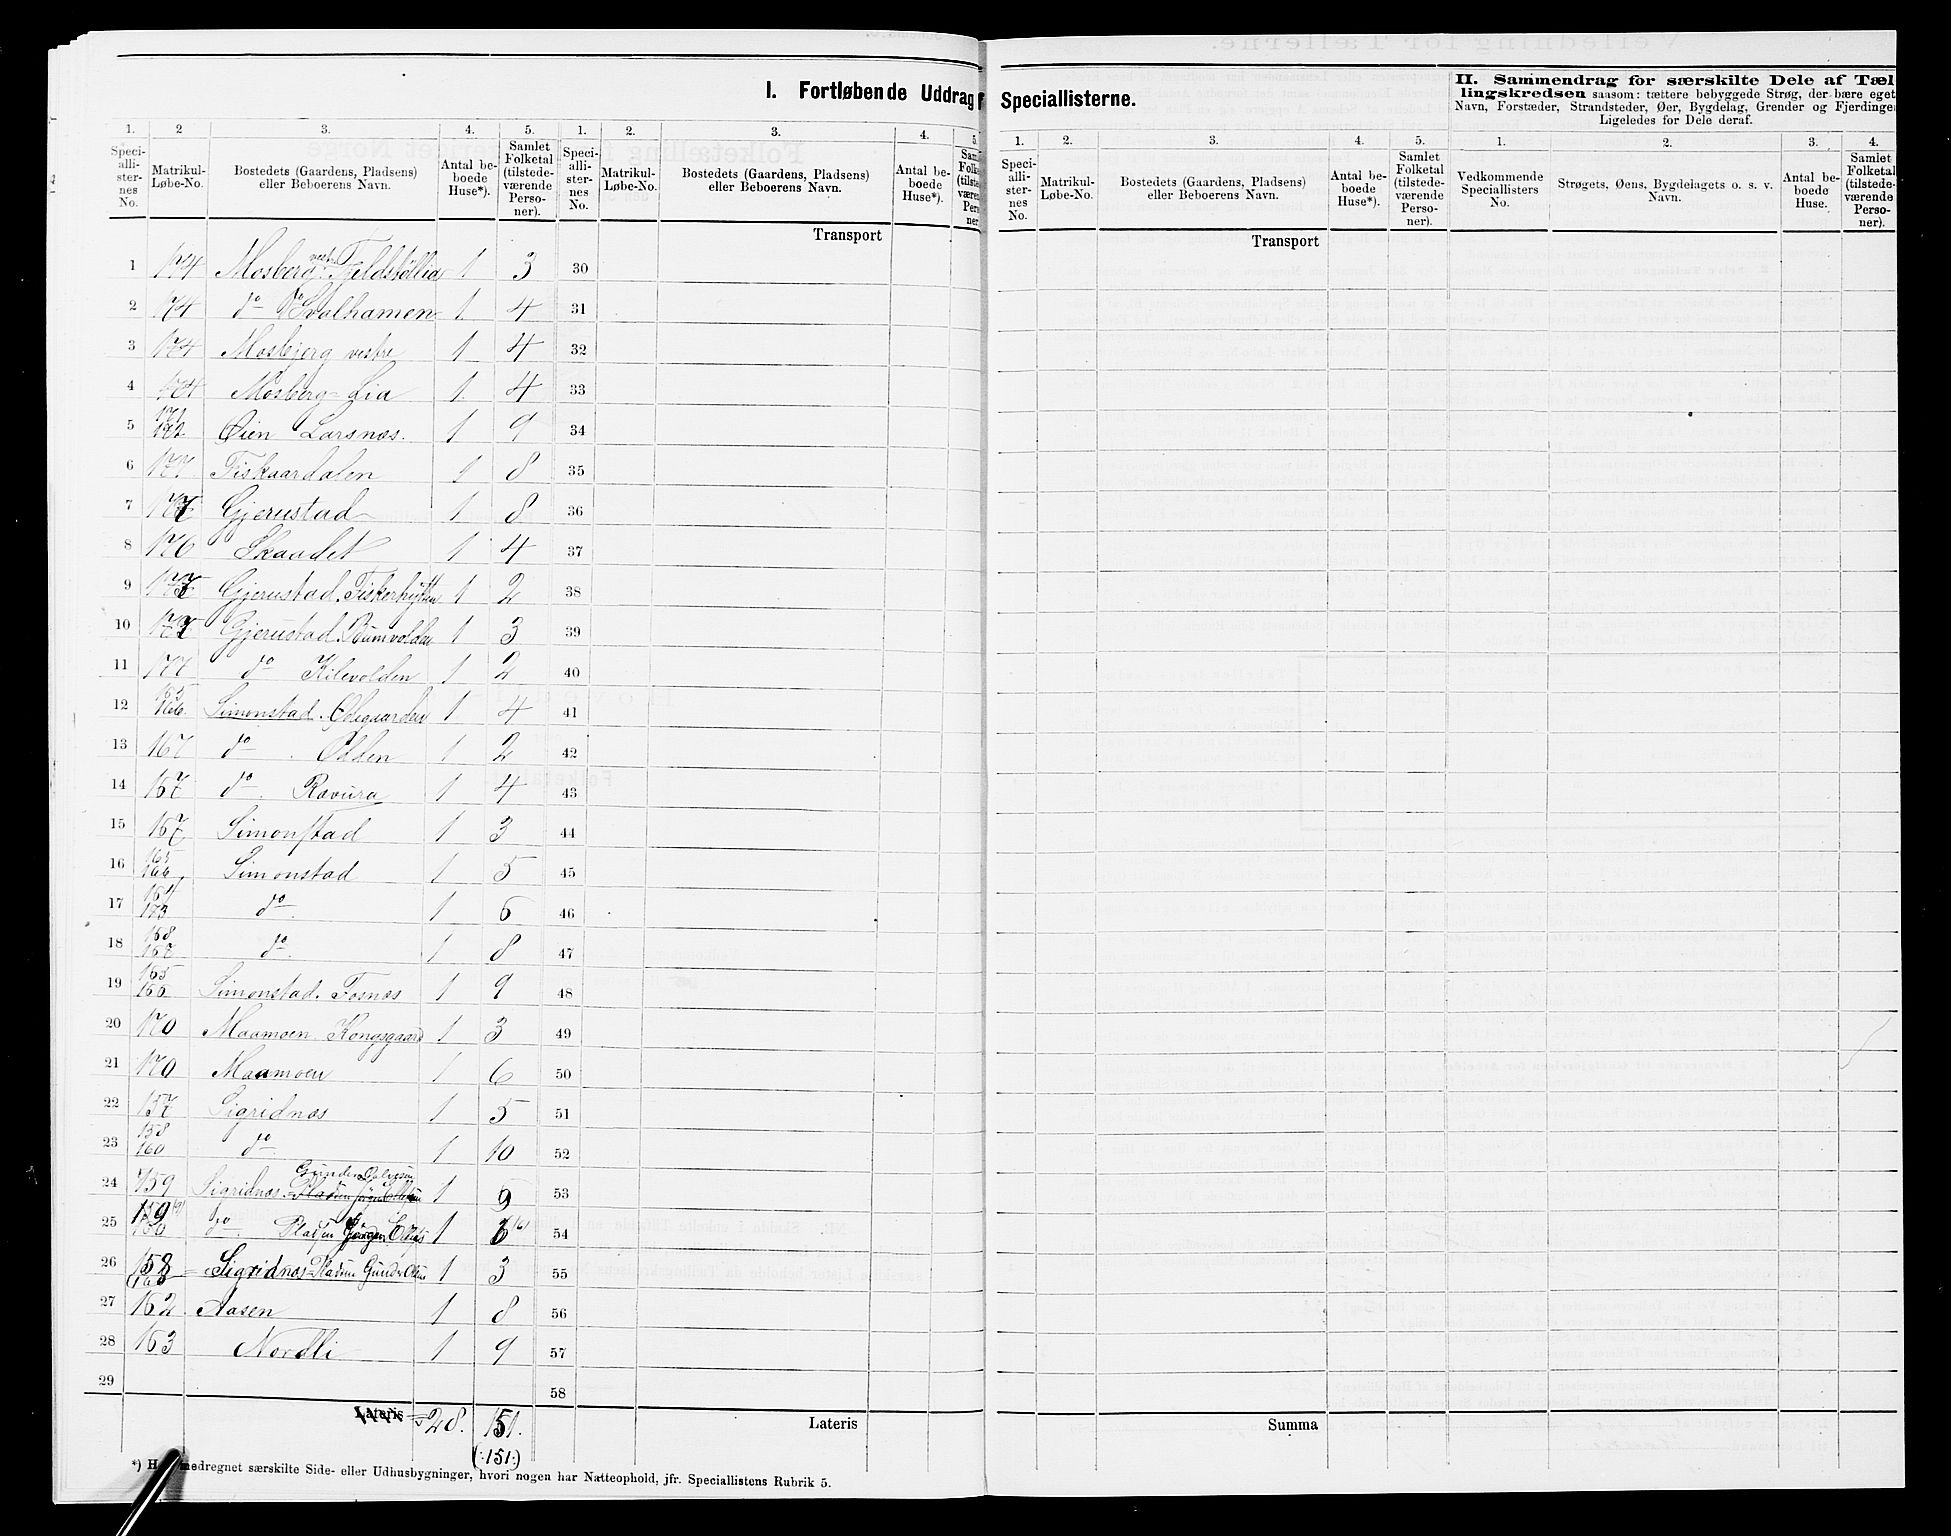 I. Fortløbende Uddrag f
Speciallisterne.
II. Sammendrag for særskilte Dele af Tæl
lingskredsen saasom: tættere bebyggede Strøg, der bære eget
Navn, Forstæder, Strandsteder, Øer, Bygdelag, Grender og Fjerdinge
Ligeledes for Dele deraf.
1. 2 3. 4. 5. 1. 2. 3. 4. 5.
Speciallisternes No. Matrikul-Løbe-No. Bostedets (Gaardens, Pladsens) eller Beboerens Navn. Antal beboede Huse*). Samlet Folketal (tilstedeværende Personer). Speciallisternes No. Matrikul-Løbe-No. Bostedets (Gaardens, Pladsens) eller Beboerens Navn. Antal beboede Huse*).
1. 2. 3. 4. 5. 1. 2. 3. 4.
Speciallisternes No. Matrikul-Løbe-No. Bostedets (Gaardens, Pladsens) eller Beboerens Navn. Antal beboede Huse*). Samlet Folketal (tilstedeværende Personer). Vedkommende Speciallisters No. Strøgets, Øens, Bygdelagets o. s. v. Navn. Antal beboede Huse. Samlet Folketal (tilstedeværende Personer).
Transport Transport
1 174 Mosberg vestre Fjeldstøllia 1 3 30
2 174 do do Svalhamen 1 4 31
3 174 Mosbjerg vestre 1 4 32
4 174 Mosberg-Lia 1 4 33
5 171 172 Øien Larsnæs. 1 9 34
6 177 Fiskaardalen 1 8 35
7 177 Gjerustad 1 8 36
8 176 Skaadet 1 4 37
9 Gjerustad. Fiskerhytten 1 2 38
10 Gjerustad. 1 3 39
11 177 do Kilevolden 1 2 40
12 165 166. Simonstad. Ødegaarden 1 4 41
13 167 do . Odden 1 2 42
14 167 do. Ravura 1 4 43
15 167 Simonstad 1 3 44
16 165 166 Simonstad 1 5 45
17 164 173 do. 1 6 46
18 168 167 do. 1 8 47
19 165 166 Simonstad. Fosnæs 1 9 48
20 170 Maamoen. Kongsgaard 1 3 49
21 170 Maamoen 1 6 50
22 157 Sigridnæs 1 5 51
23 158 160 do 1 10 52
24 159 Sigridnæs Gunder 1 9 53
25 159 do. Pladsen 1 54
26 158 Sigridnæs-Pladsen Gunder Olsen 1 3 55
27 162 Aasen 1 8 56
28 163 Nordli 1 9 57
29 58
Lateris 28. 151. Lateris Summa
(:151:)
*) H medregnet særskilte Side- eller Udhusbygninger, hvori nogen har Natteophold, jfr. Speciallistens Rubrik 5.